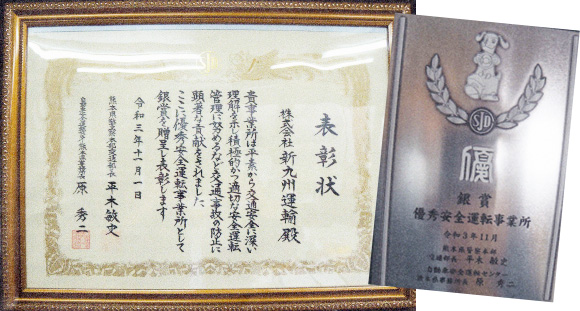 表彰状
株式会社 新九州運輸 殿
貴事業所は平素から交通安全に深い
理解を示し積極的かつ適切な安全運転
管理に努めるなど交通事故の防止に
顕著な貢献をされました
ここに優秀安全運転事業所として
銀賞を贈呈し表彰します
令和三年十一月一日
熊本県警察本部交通部長 平木敏史
自動車安全運転センター熊本県事務所長 原秀二
SJD
優
銀賞
優秀安全運転事業所
令和3年11月
熊本県警察本部
交通部長 平木敏史
自動車安全運転センター
熊本県事務所長 原秀二